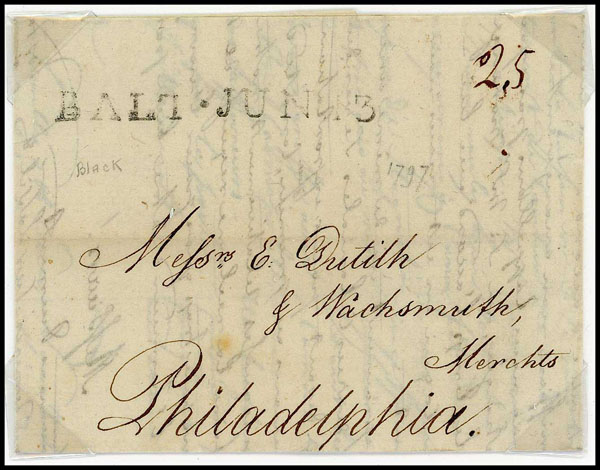 25
BALT · JUN 13
Black
1797
Messrs E. Dutilh
& Wachsmuth,
Merchts
Philadelphia.